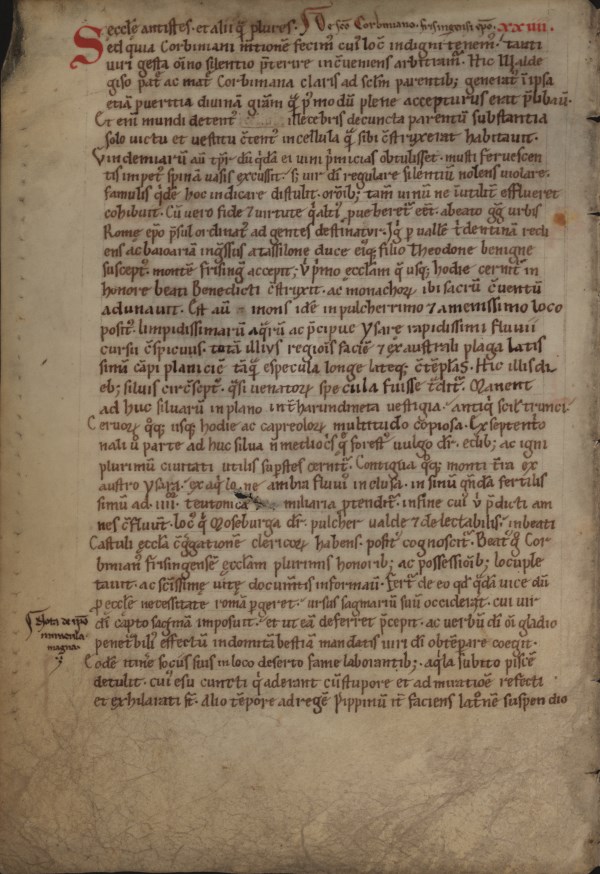 ecclę antistes · et alii q̄ plures · De sc̄o Corbiniano · frisingensi ep̄o · XXIIII ·
Sed quia Corbiniani m̄tionē fecim̃ cui᷒ loc̄ indigni tenem᷒ · tanti
uiri gesta om̄ino silentio p̄terire incōueniens arbitram̃ · Hic Walde
giso pat̃ ac mat̃ Corbiniana claris ad sc̄lm̄ parentib; generat᷒ in ipsa
etiā pueritia diuinā gr̄am q̄ p̱᷒modū plene accepturus erat
Et eni᷒ mundi detent᷒ illecebris decuncta parentū substantia
solo uictu et uestitu cōtent᷒ in cellula q̄ sibi cōstruxerat habitauit ·
Vindemiarū aū tp̄r dū q̄dā ei uini p̄micias obtulisset · musti feruescen
tis impet᷒ spinā uasis excussit · s; uir dī regulare silentiū nolens uiolare ·
famulis q̄dē hoc indicare distulit · or̄onib; tam̄ uinū ne inutilit̃ efflueret
cohibuit · Cū uero fide & uirtute pollere abeato gg̃ urbis
Romę ep̄o p̄sul ordinat᷒ ad gentes destinatur · Isq; p uallē tridentinā redi
ens ac baioariā ingressus a tassilone duce eiq; filio Theodone benigne
suscept᷒ · montē frisingę accepit; ubi p̄mo ecclam q̄ usq; hodie cernit᷒ in
honore beati Benedicti cōstruxit · ac monachorū ibi sacrū cōuentū
adunauit · Est aū mons idē in pulcherrimo & amenissimo loco
posit᷒ · limpidissimarū aq̄rū ac p̄cipue Ysarę rapidissimi fluuii
cursu cōspicuus · totā illius regiōis faciē & ex australi plaga latis
simū cāpi planiciē tāq̄ e specula longe lateq; cōtēplans · Hic illis di
eb; siluis circūsept᷒ · q̄si uenatorū specula fuisse t̄dit᷒ · Manent
ad huc siluarū in plano uestigia · antiq̄ scil̃ trunci ·
Ceruorū q̄q; usq; hodie ac capreolorū multitudo copiosa · Ex septentrio
nali ū parte ad huc silua n̄ mediocris q̄ forest᷒ uulgo dr̄ · ędib; ac igni
plurimū ciuitati utilis supstes cernit᷒ · Contigua q̄q; monti tr̄a ex
austro ysara · ex aq̄lone ambra fluuiis inclusa · in sinū q̄ndā fertilis
simū ad · IIII · teutonica miliaria p̱tendit᷒ · in fine cui᷒ ū p̄dicti am
nes cōfluunt · loc᷒ q̄ Moseburga dr̄ · pulcher ualde & delectabilis · in beati
Castuli ecclā cōgregationē clericorū habens · posit᷒ cognoscit᷒ · Beat᷒ q̄ Cor
binian᷒ frisingensē ecclam plurimis honorib; ac possessiōib; locuple
tauit · ac sc̄issimę uitę documtis informauit · Fert᷒ de eo qd̄ q̄dā uice dū
p ecclę necessitate romā p̱geret · ursus sagmariū suū occiderat · cui uir
dī capto sagmā imposuit · et ut eā deferret p̄cepit · ac uerbū dī oī gladio
penetrabili᷒ effectū indomitā bestiā mandatis uiri dī obtēpare coegit ·
Eodē itin̄e sociis suis in loco deserto fame laborantib; aq̄la subito piscē
detulit · cui᷒ esu cuncti q̄ aderant cū stupore et admiratiōe refecti
et exhilarati st̄ · Alio tēpore ad regē Pippinū iter faciens latronē suspendio
Nota de ep̄o
miracula
magna ·